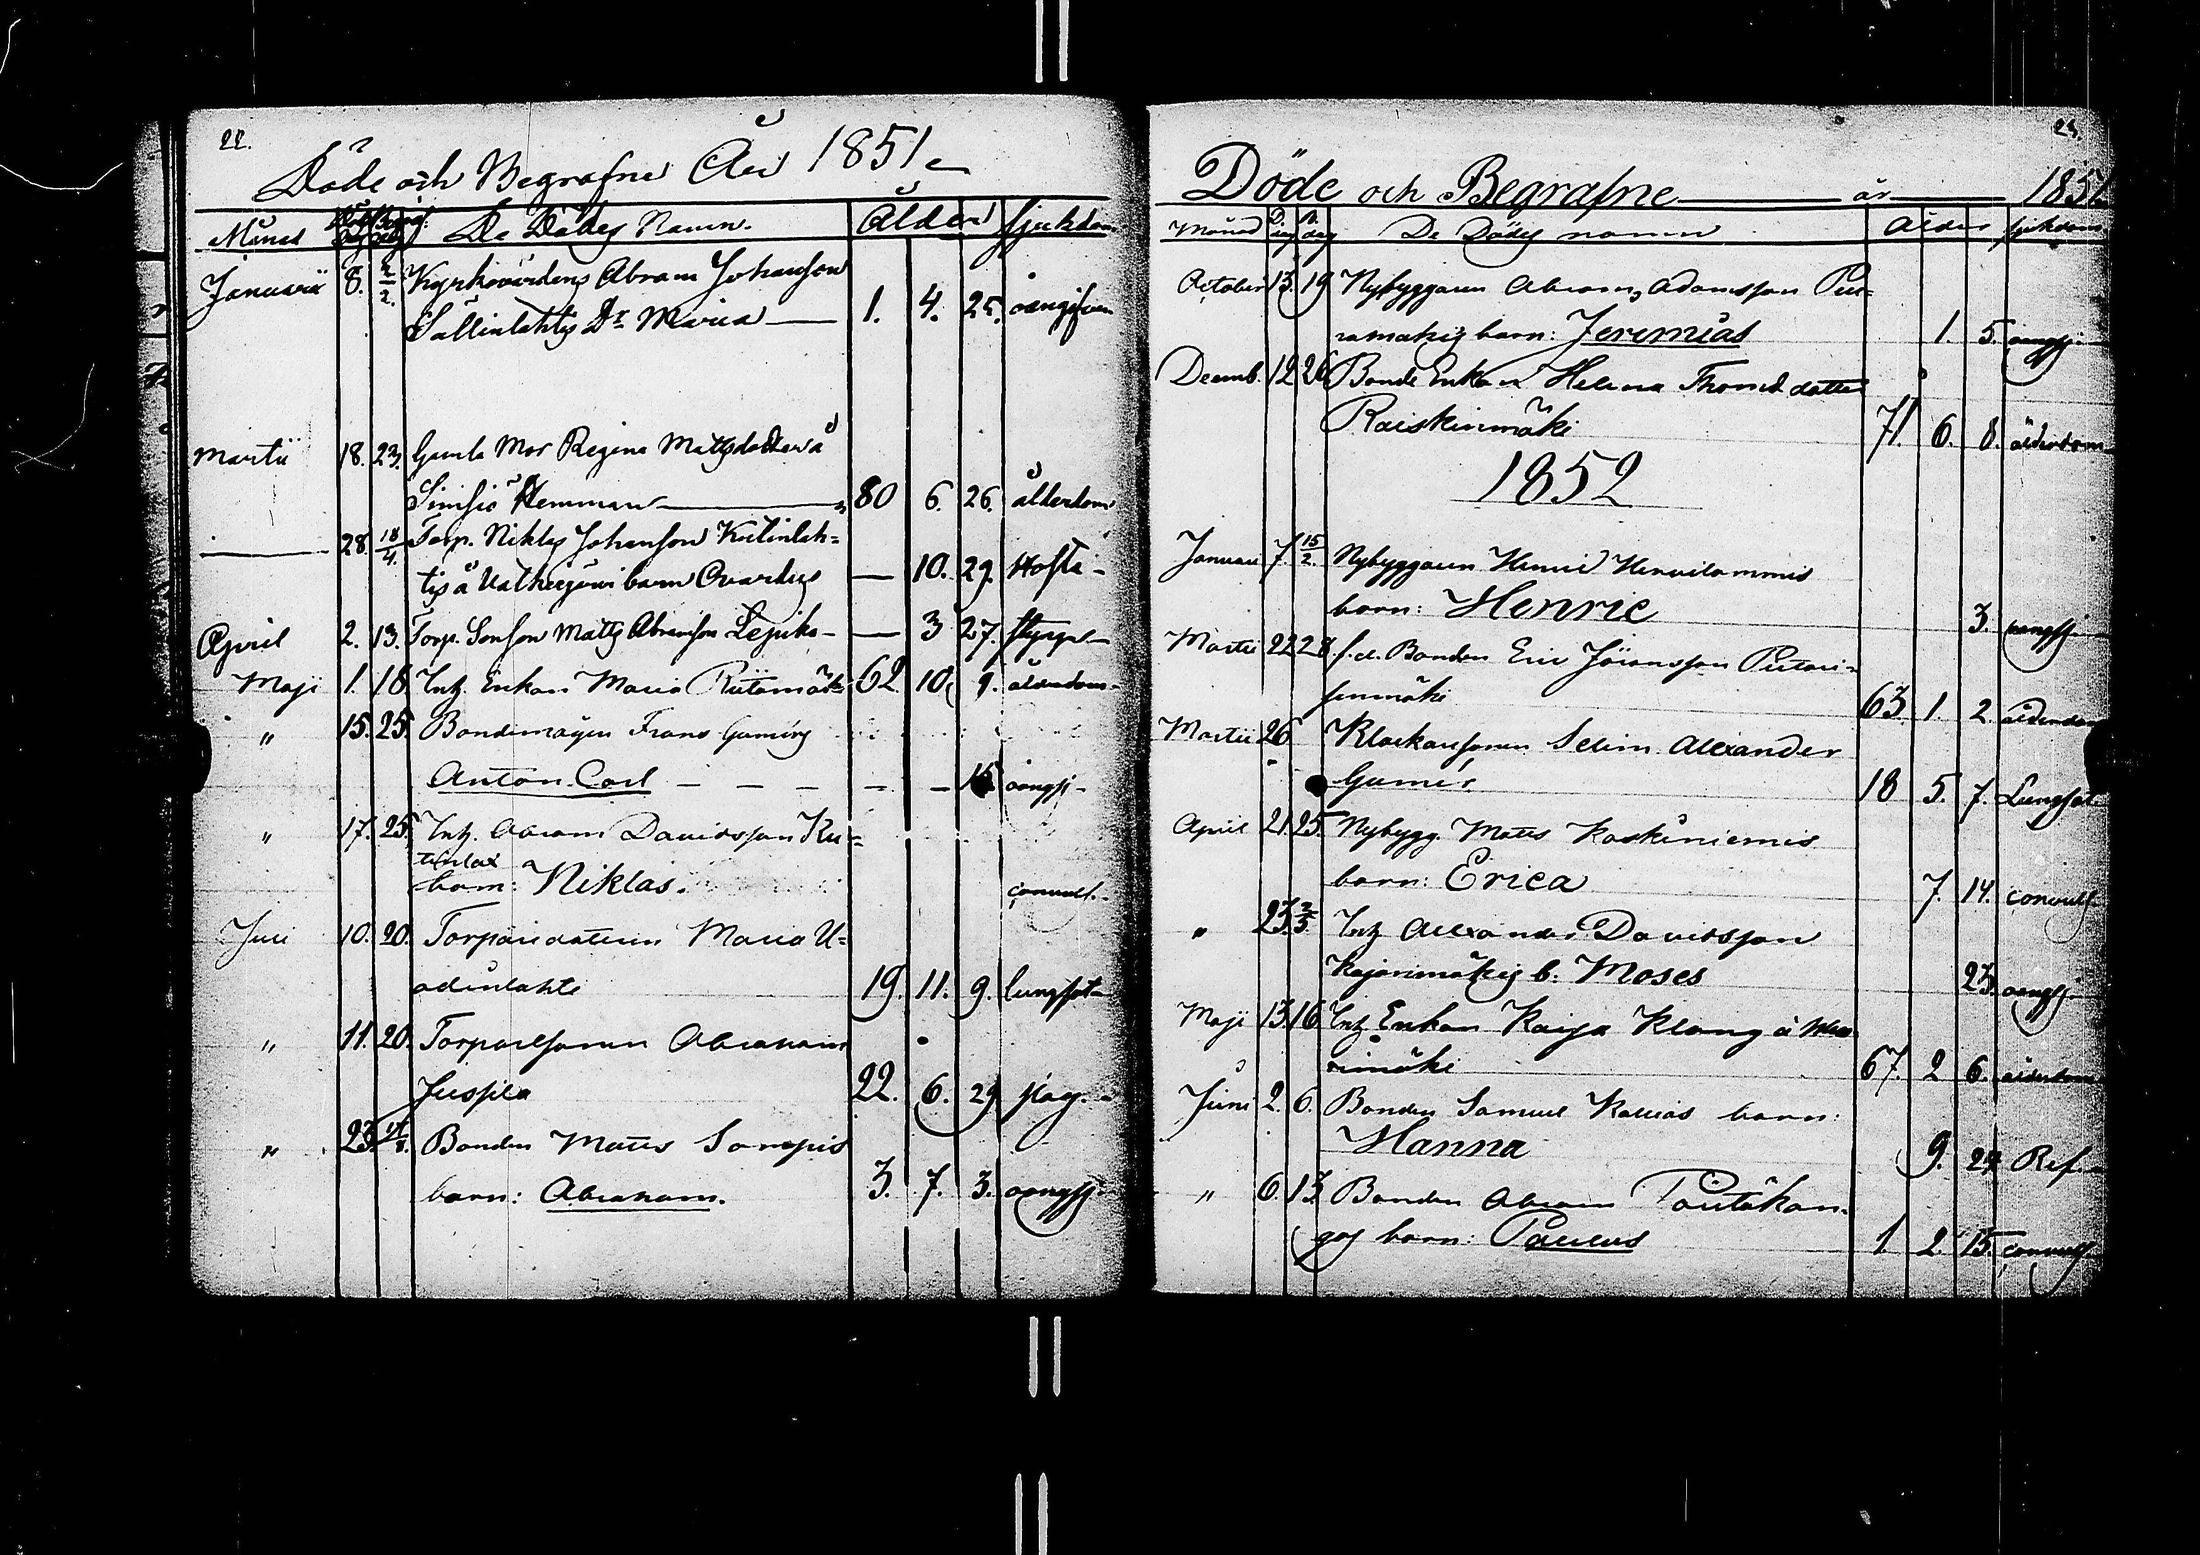 22.
Döde och Begrafne År 1851
Månad De Dödes Namn. Ålder Sjukdom
Januarii 8. 2/2. Kyrkovärdens Abram Johansson
Sällinlahtis Dr Maria 1. 4. 25. oangifven
Martii 18. 23. Gamla Mor Regina Mattsdotter å
Hemman 80 6. 26. ålderdom
28. 18/4. Torp. Niklas Johansson Kutinlah-
tis å barn — 10. 29. Hosta
April 2. 13. Torp. Sonson Matts Abramsson — 3 27.
Maji 1. 18. Inh. Enkan Maria Riitamäki 62. 10. 9. ålderdom
" 15. 25. Bondemågen Frans
Anton Carl — — — — — 15 oangif-
" 17. 25. Inh. Abram Davidsson Ku-
tinlax
barn: Niklas. convuls.
Juni 10. 20. Torparedottern Maria U-
adinlahti 19. 11. 9. lungsot
" 11. 20. Torparesonen Abraham
22. 6. 29
" 23. Bonden Matts
barn: Abraham. 3. 7. 3. oangif-
23.
Döde och Begrafne år 1851
Månad D. dag B. dag De Dödes namn Ålder sjukdom
October 13. 19 Nybyggaren Abram Adamsson Pur-
ramakis barn: Jeremias 1. 5 oangif.
Decemb. 12 26 Bonde Enkan Helena Thomæ dotter
Raiskinmäki 71. 6. 8. ålderdom
1852
Januari 7. 15/2 Nybyggaren Henric Hervilammis
barn: Henric 3. oangif
Martii 22 28 f.d. Bonden Eric Jöransson
63. 1. 2. ålderdom
Martii 26 Klockaresonen Selim Alexander
18 5. 7. Lungsot
April 21. 25. Nybygg. Matts Koskiniemis
barn: Erica 7. 14. convuls
" 23. 2/5. Inh Alexander Davidsson
Kajanimäkis b: Moses 23. oangif
Maji 13. 16. Inh. Enkan Kaija Klang å
rimäki 67. 2 6. ålderdom
Juni 2. 6. Bonden Samuel Kallias barn:
Hanna 9. 24 Ref
" 6. 13. Bonden Abram Poutakan-
gas barn: Paulus 1 2. 15. convuls